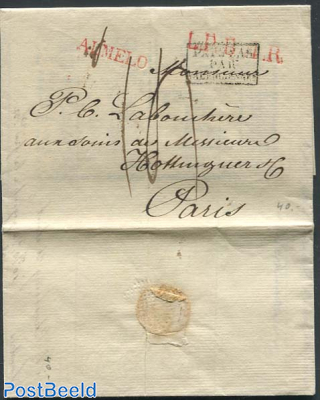 ALMELO
L.P.B.2.R
PAYS-BAS
PAR
Monsieur
P. C. Labouchère
aux soins de Messieurs
Hottinguer & C
Paris
40.-
PostBeeld